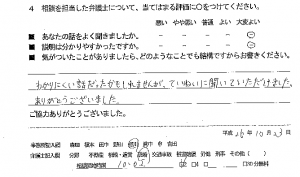 4 相談を担当した弁護士について、当てはまる評価に○をつけてください。
悪い やや悪い 普通 よい 大変よい
■ あなたの話をよく聞きましたか。
■ 説明は分かりやすかったですか。
■ 気がついたことがありましたら、どのようなことでも結構ですからお書きください。
わかりにくい話だったかもしれませんが、ていねいに聞いていただけました。
ありがとうございました。
ご協力ありがとうございました。
平成 26年 10月 23日
分野 不動産 相続・遺言 交通事故 労働 刑事 その他 ( )